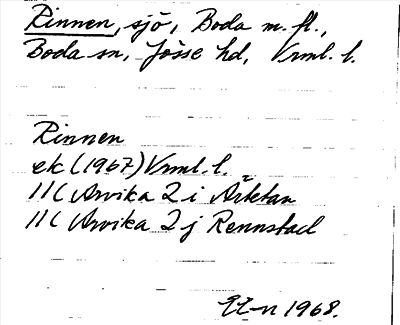 Rinnen, sjö, Boda m. fl.,
Boda sn, Jösse hd, Vrml. l.
Rinnen
ek (1967) Vrml. l.
11C Arvika 2 i Årketan
11C Arvika 2 j Rennstad
1968.